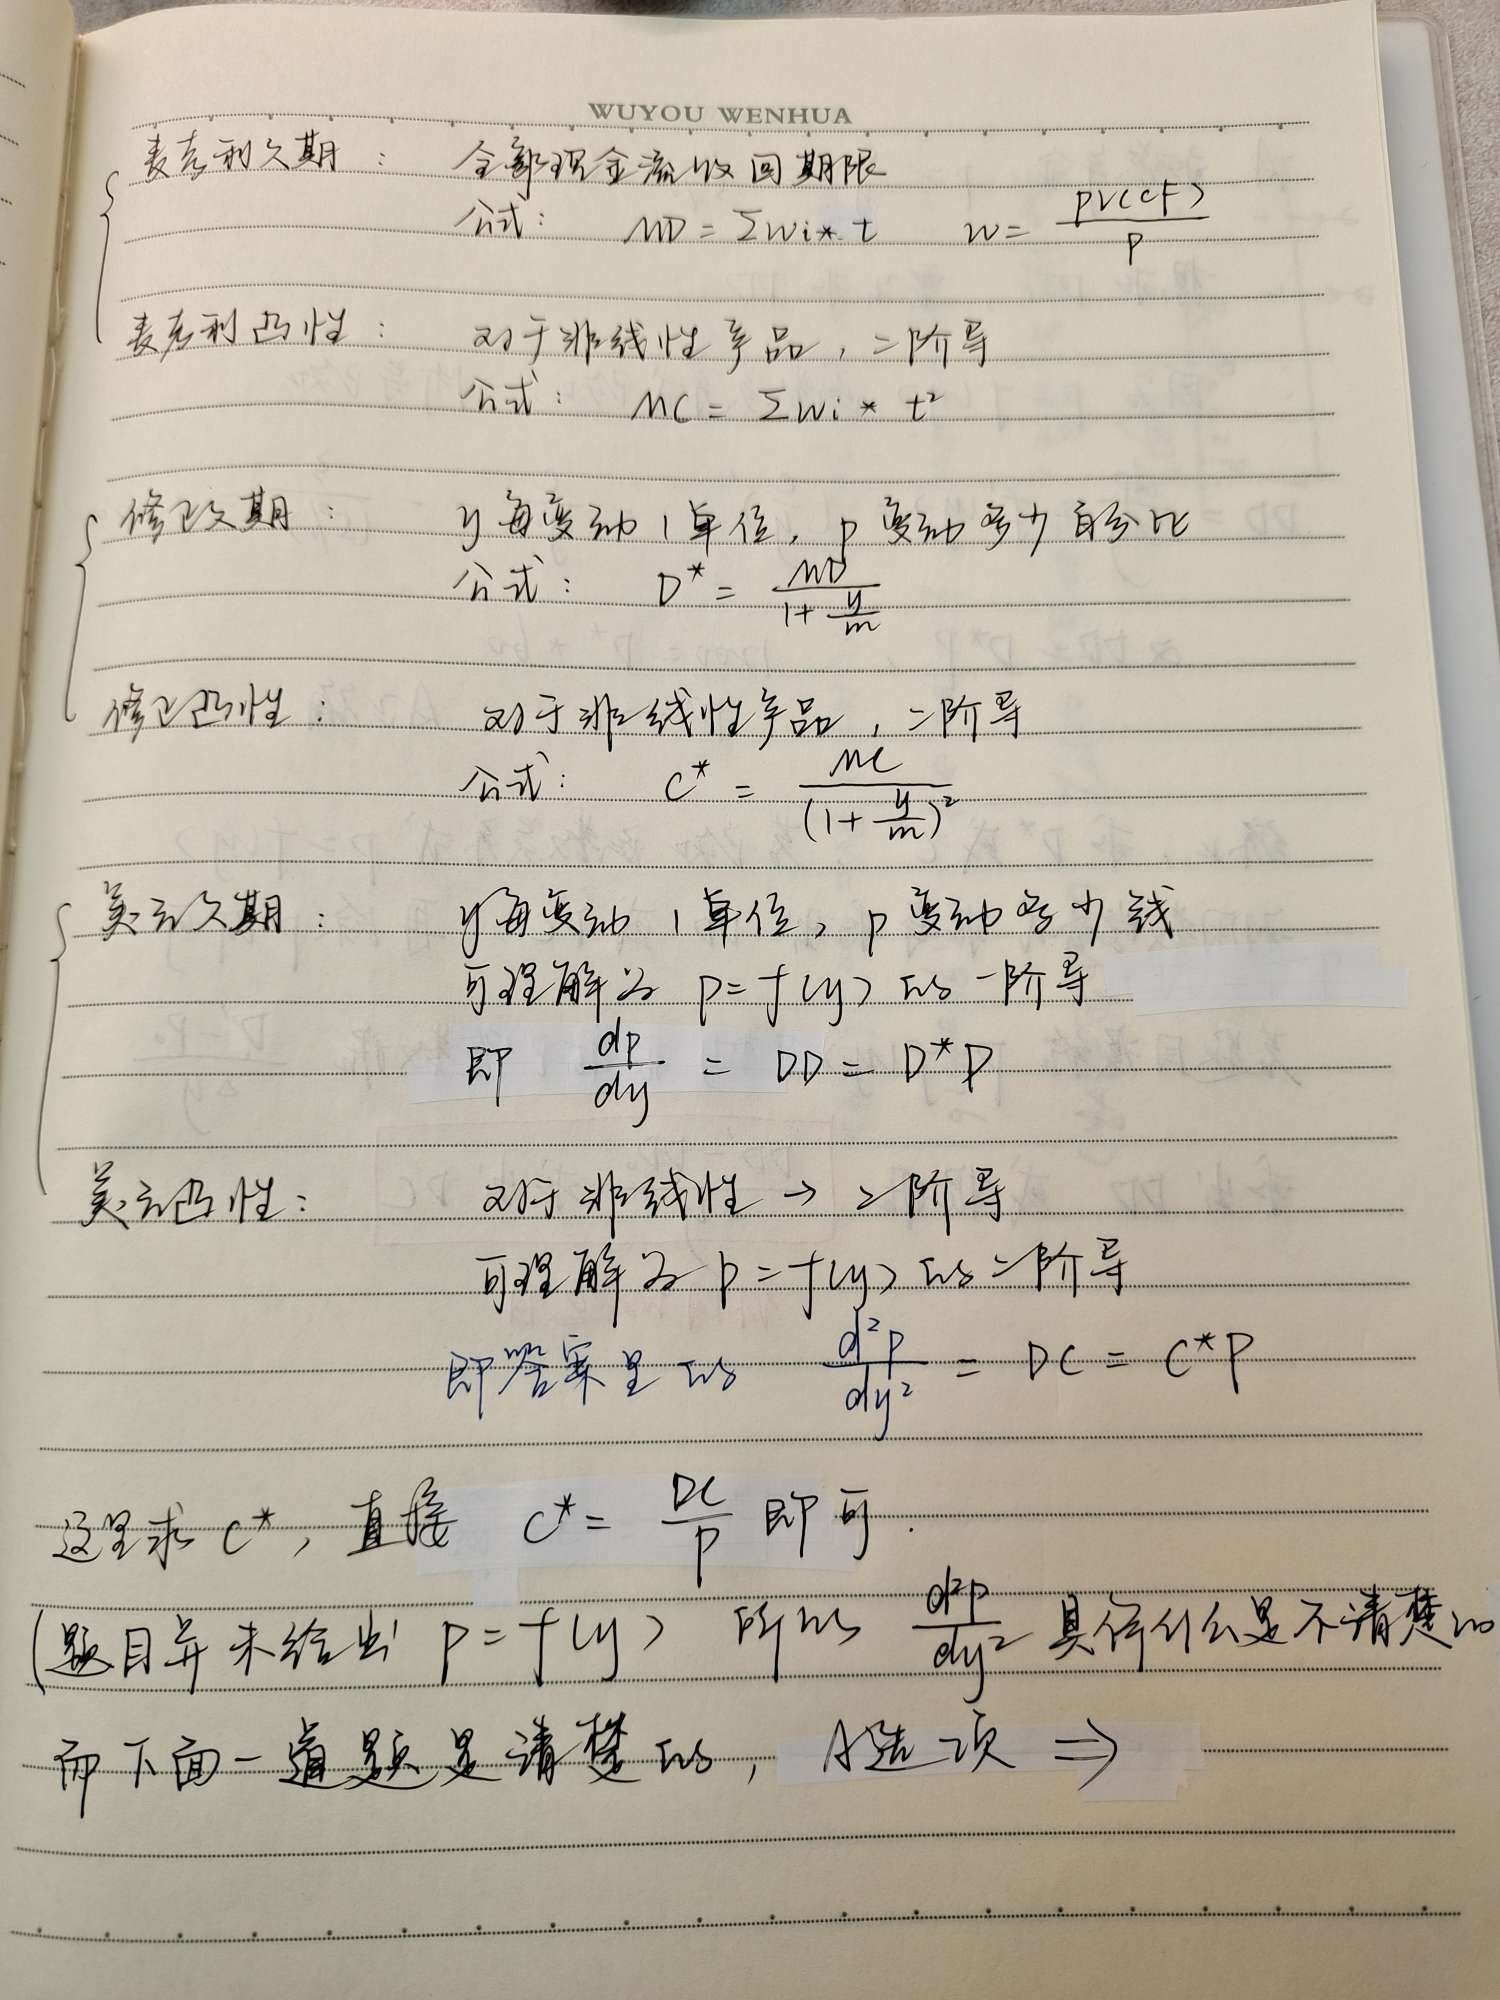 WUYOU WENHUA
麦考利久期： 全部现金流收回期限
公式： MD = Σwi * t w = PV(CF)/P
麦考利凸性： 对于非线性产品，二阶导
公式： MC = Σwi * t²
修正久期： y每变动1单位，p变动多少百分比
公式： D* = MD/(1+y/m)
修正凸性： 对于非线性产品，二阶导
公式： C* = MC/(1+y/m)²
美元久期： y每变动1单位，p变动多少钱
可理解为 p=f(y) 的一阶导
即 dp/dy = DD = D*P
美元凸性： 对于非线性 → 二阶导
可理解为 p=f(y) 的二阶导
即答案里的 d²p/dy² = DC = C*P
这里求 C*，直接 C* = DC/P 即可.
(题目并未给出 p=f(y) 所以 d²p/dy² 具体什么是不清楚的
而下面一道题是清楚的，A选项 ⇒